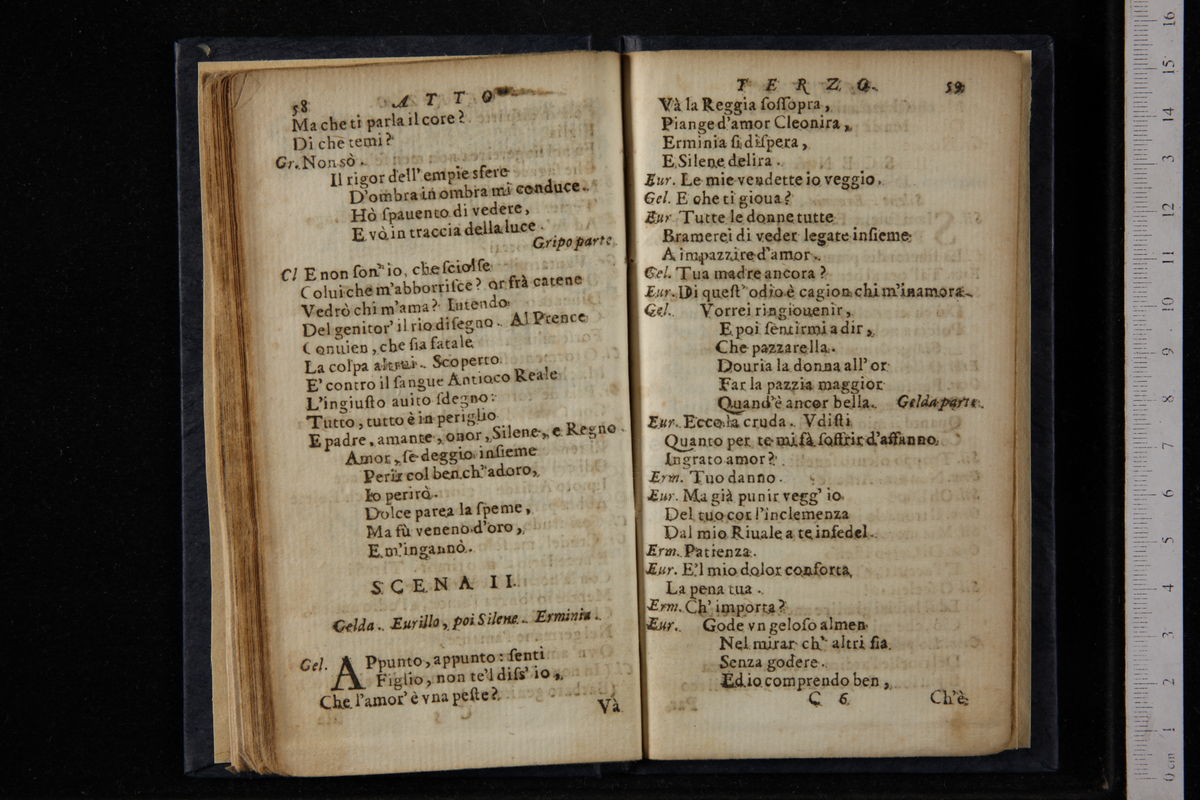 58 ATTO
Ma che ti parla il core?
Di che temi?
Gr. Non sò.
Il rigor dell' empie sfere
D'ombra in ombra mi conduce.
Hò spauento di vedere,
E vò in traccia della luce.
Gripo parte.
Cl E non son' io, che sciolse
Colui che m'abborrisce? or frà catene
Vedrò chi m'ama? Intendo
Del genitor' il rio disegno. Al Prence
Conuien, che sia fatale
La colpa altrui. Scoperto
E' contro il sangue Antioco Reale
L'ingiusto auito sdegno:
Tutto, tutto è in periglio
E padre, amante, onor, Silene, e Regno
Amor, se deggio insieme
Perir col ben ch' adoro,
Io perirò.
Dolce parea la speme,
Ma fù veneno d'oro,
E m'ingannò.
SCENA II.
Gelda. Eurillo, poi Silene. Erminia.
Gel. APpunto, appunto: senti
Figlio, non te'l diss' io,
Che l'amor' è vna peste?
Và
TERZO. 59
Và la Reggia sossopra,
Piange d'amor Cleonira,
Erminia si dispera,
E Silene delira.
Eur. Le mie vendette io veggio.
Gel. E che ti gioua?
Eur Tutte le donne tutte
Bramerei di veder legate insieme
A impazzire d'amor.
Gel. Tua madre ancora?
Eur. Di quest' odio è cagion chi m'inamora.
Gel. Vorrei ringiouenir,
E poi sentirmi a dir,
Che pazzarella.
Douria la donna all' or
Far la pazzia maggior
Quand'è ancor bella. Gelda parte.
Eur. Ecco la cruda. Vdisti
Quanto per te mi fà soffrir d'affanno
Ingrato amor?
Erm. Tuo danno.
Eur. Ma già punir vegg' io
Del tuo cor l'inclemenza
Dal mio Riuale a te infedel.
Erm. Patienza.
Eur. E'l mio dolor conforta
La pena tua.
Erm. Ch' importa?
Eur. Gode vn geloso almen
Nel mirar ch' altri sia
Senza godere.
Ed io comprendo ben,
C 6 Ch'è